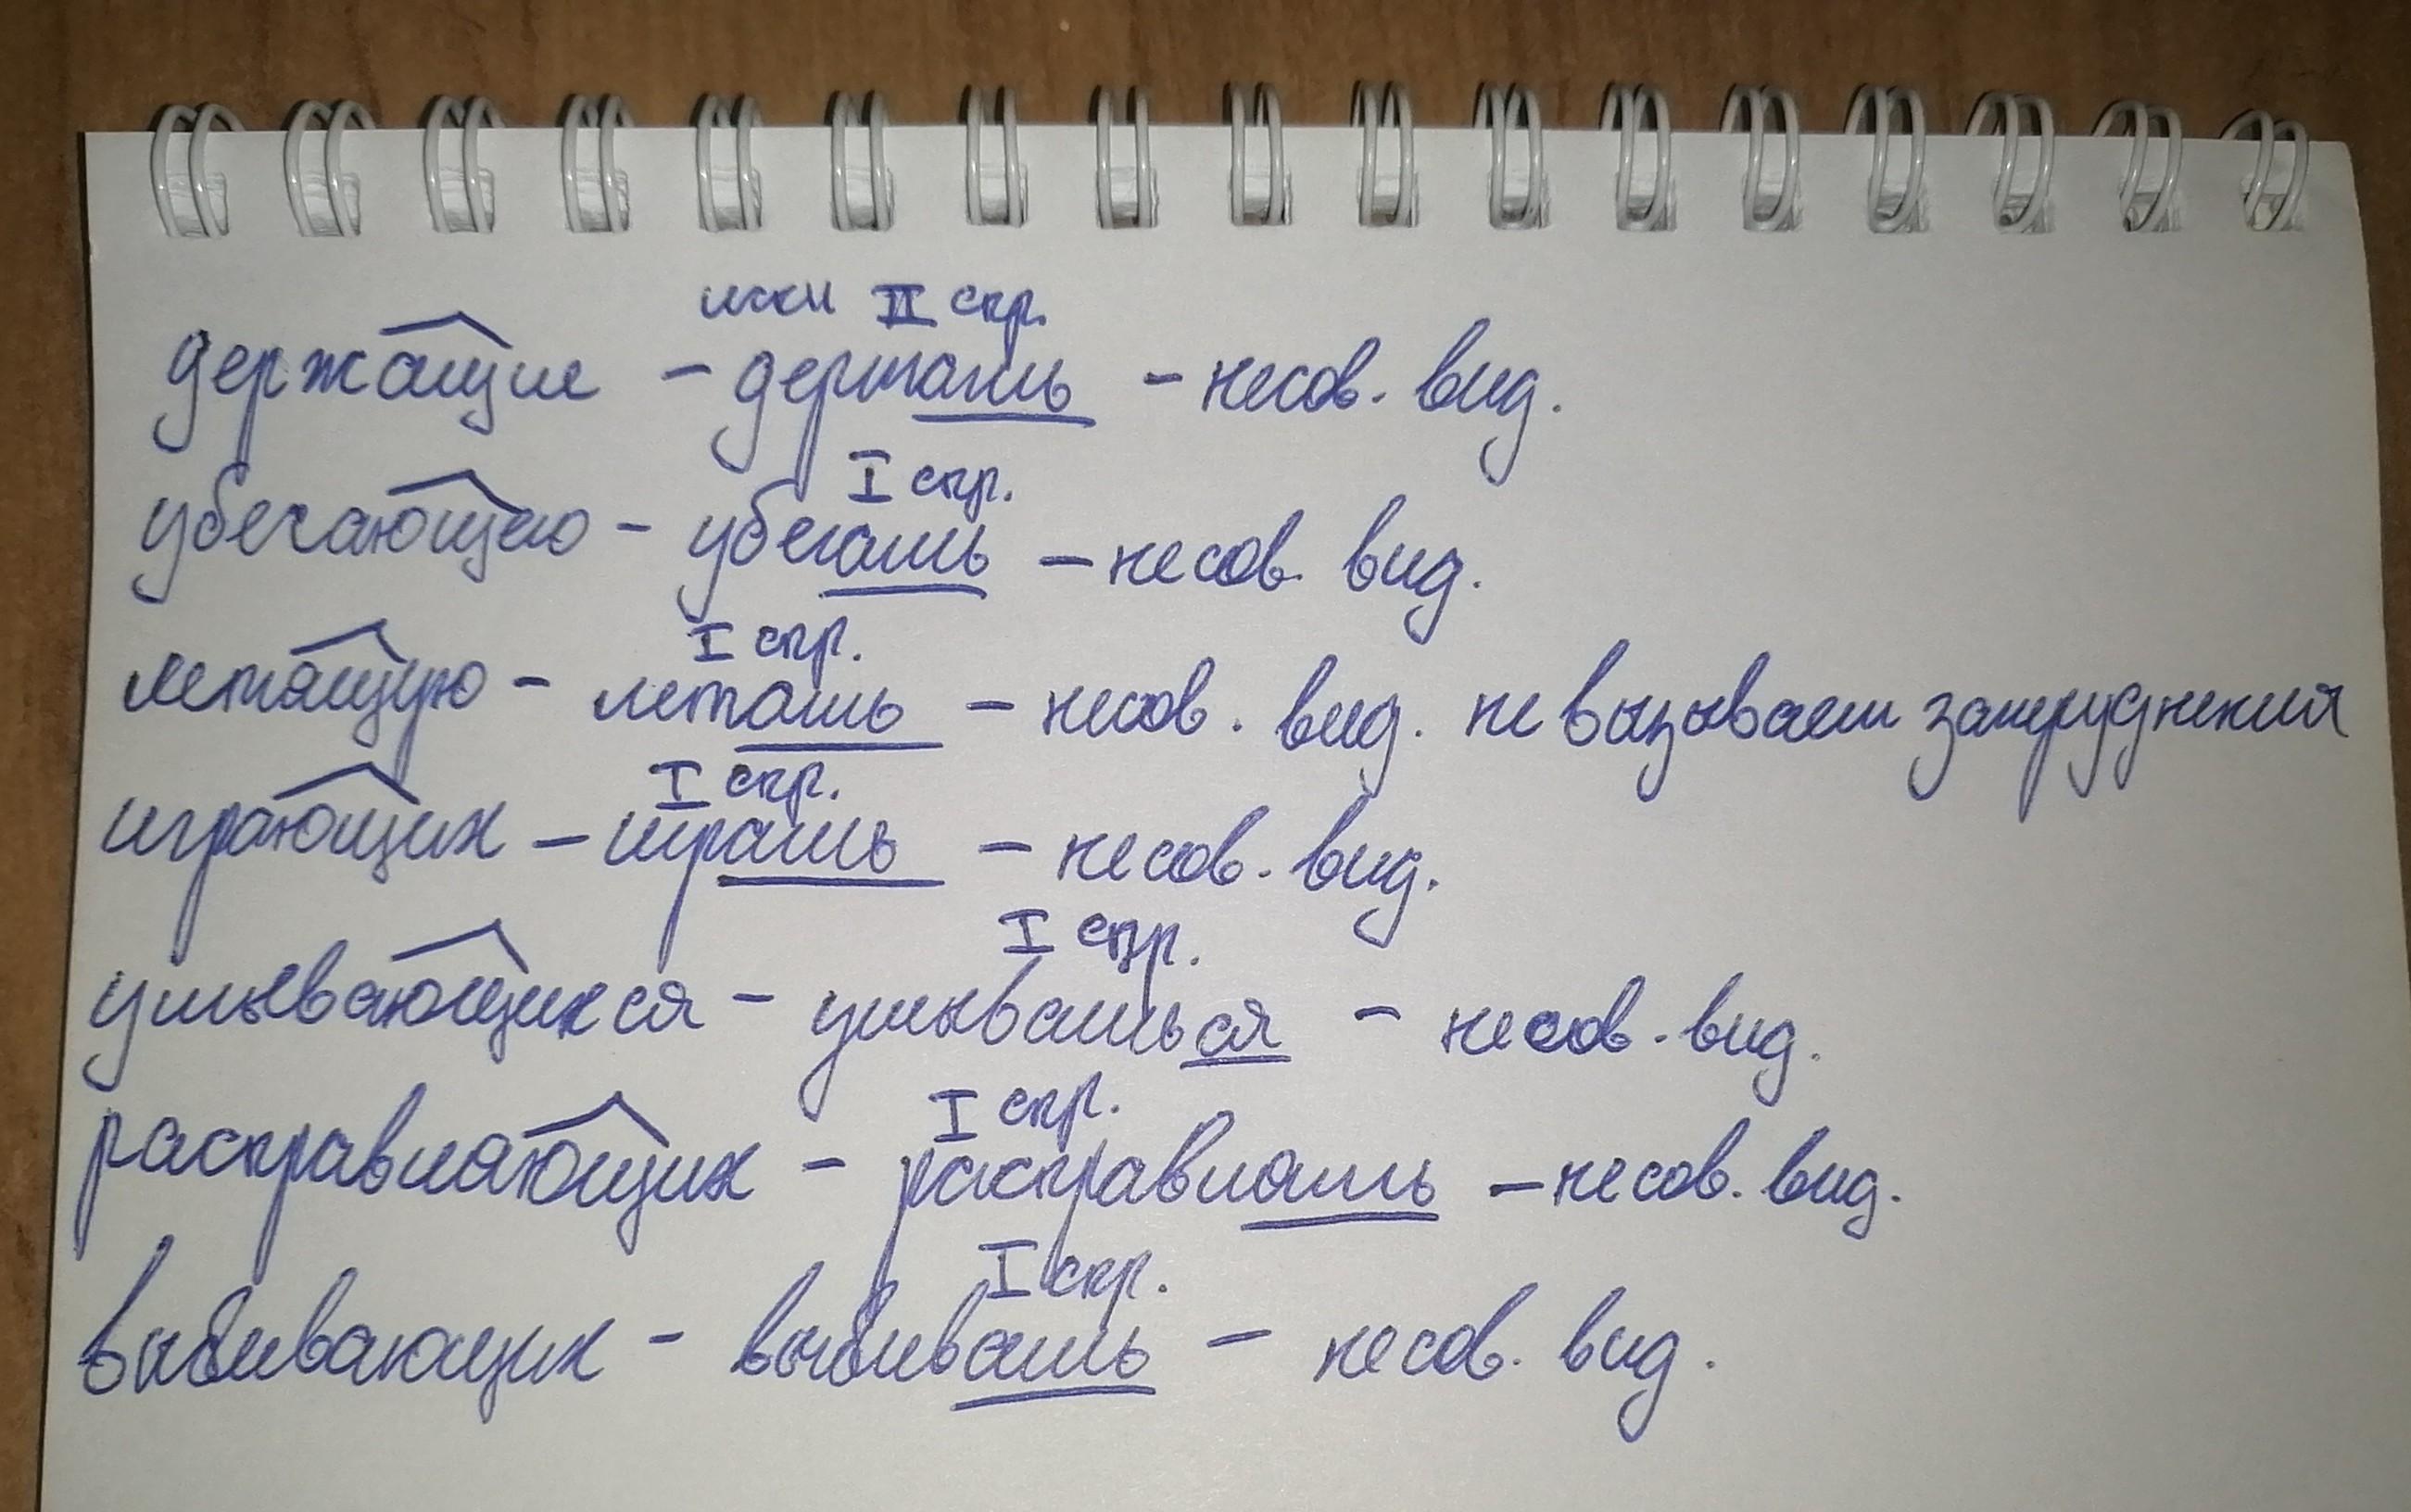 искл II спр.
держащие - держать - несов. вид.
I спр.
убегающую - убегать - несов. вид.
I спр.
летащую - леташь - несов. вид. не вызывает затруднения
I спр.
играющих - играть - несов. вид.
I спр.
умывающихся - умываться - несов. вид.
I спр.
расправляющих - расправлять - несов. вид.
I спр.
выбивающих - выбивать - несов. вид.